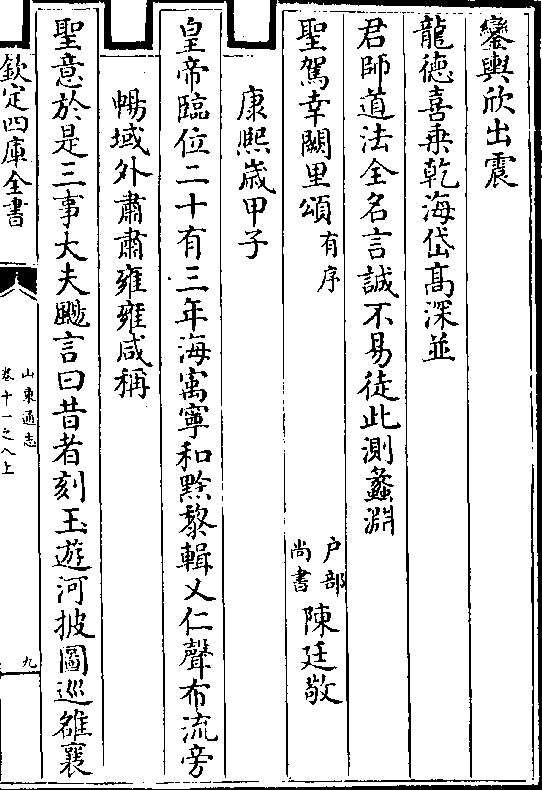 鑾輿欣出震
龍德喜乗乾海岱髙深並
君師道法全名言誠不易徒此測蠡淵
聖駕幸闕里頌有序 户部尚書陳廷敬
康熙歲甲子
皇帝臨位二十有三年海㝢寧和黔黎輯乂仁聲布流旁
暢域外肅肅雍雍咸稱
聖意於是三事大夫颺言曰昔者刻玉遊河披圖巡雒襄
欽定四庫全書
山東通志
卷十一之八上
九